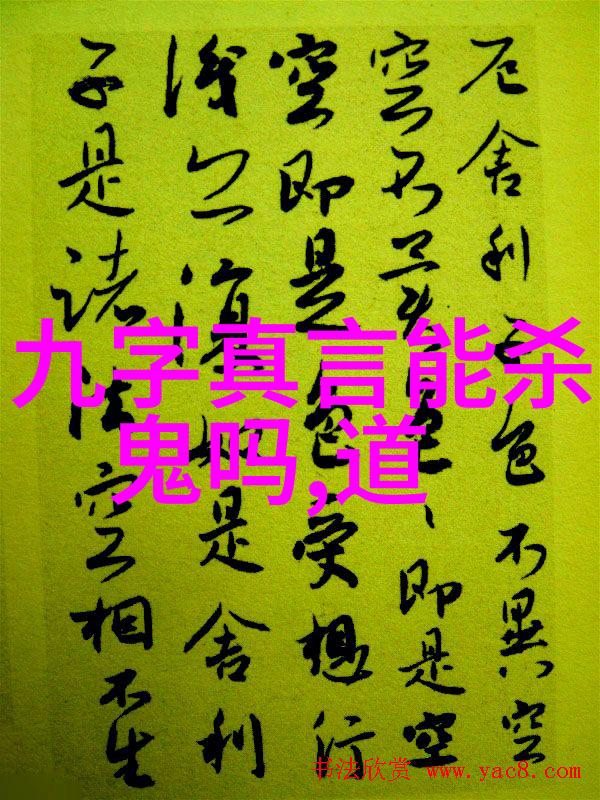 厄舍利子色不異空
空不異色、即是空
空即是色受想行
識亦復如是舍利
子是諸法空相不生
九字真言能杀
鬼吗,道
书法欣赏 www.yac8.com